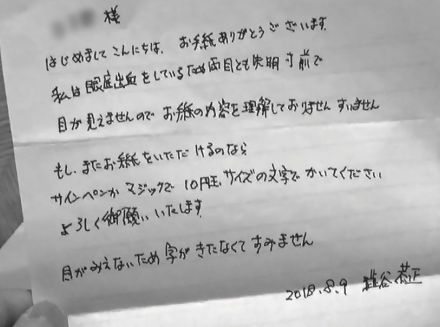 様
はじめまして こんにちは、お手紙ありがとうございます
私は眼底出血をしているため両目とも失明寸前で
目が見えませんので お手紙の内容を理解しておりません すいません
もし、またお手紙をいただけるのなら
サインペンか マジックで 10円玉サイズの文字で かいてください
よろしく御願いいたします
目がみえないため字がきたなくて すみません
2018.8.9